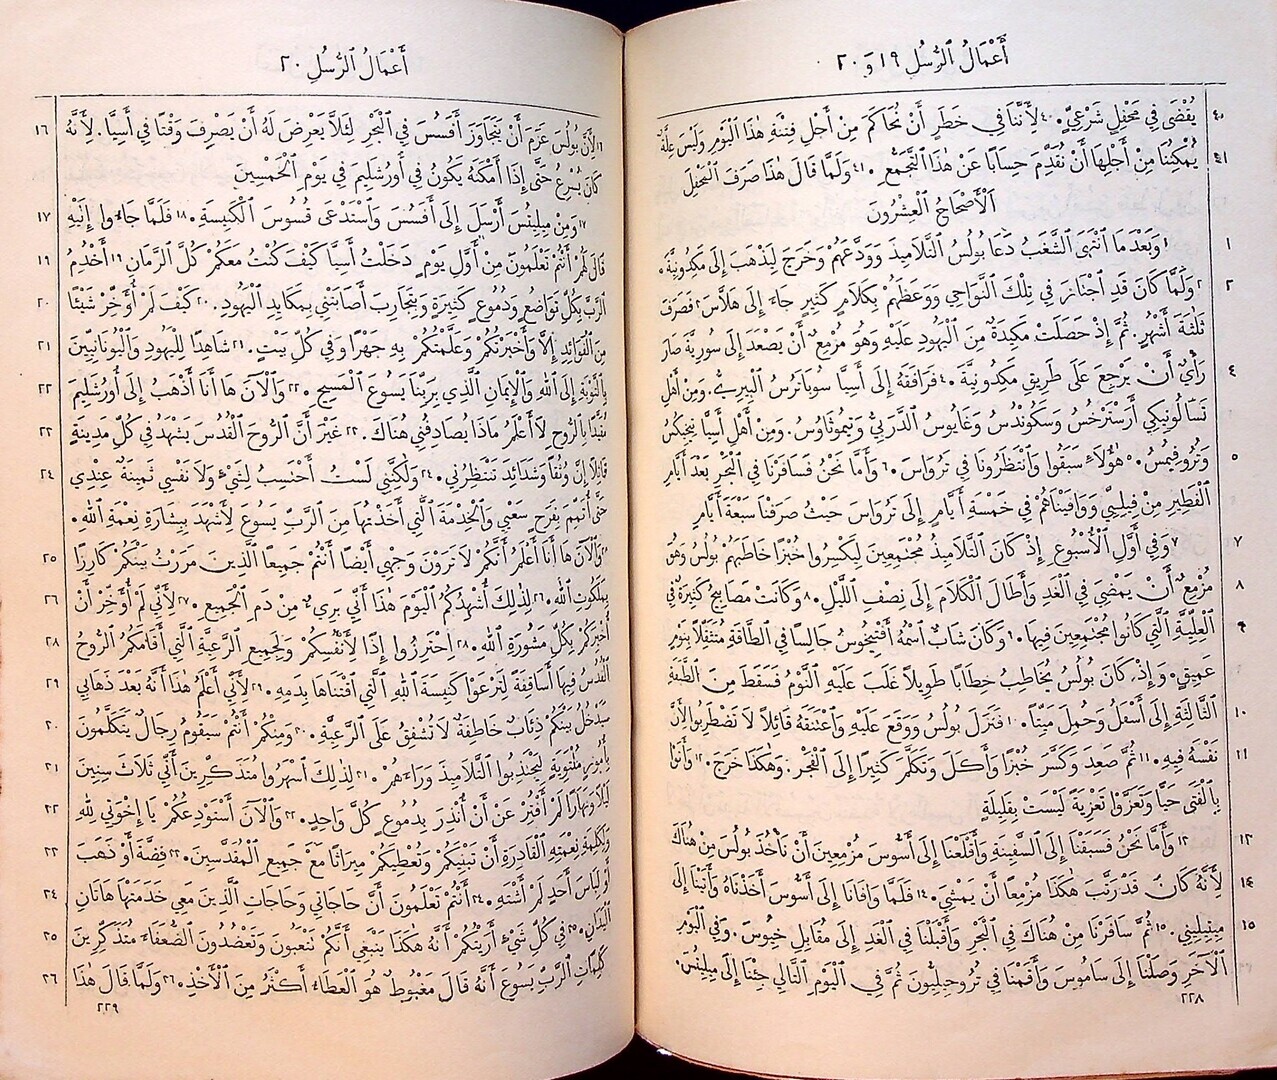 أَعْمَالُ ٱلرُّسُلِ ١٩ وَ ٢٠
٤٠ يُقْضَى فِي مَحْفِلٍ شَرْعِيٍّ. ٤٠ لِأَنَّنَا فِي خَطَرٍ أَنْ نُحَاكَمَ مِنْ أَجْلِ فِتْنَةِ هٰذَا ٱلْيَوْمِ وَلَيْسَ عِلَّةٌ
٤١ يُمْكِنُنَا مِنْ أَجْلِهَا أَنْ نُقَدِّمَ حِسَابًا عَنْ هٰذَا ٱلتَّجَمُّعِ. ٤١ وَلَمَّا قَالَ هٰذَا صَرَفَ ٱلْمَحْفِلَ
اَلْأَصْحَاحُ ٱلْعِشْرُونَ
١ ١ وَبَعْدَ مَا ٱنْتَهَى ٱلشَّغَبُ دَعَا بُولُسُ ٱلتَّلَامِيذَ وَوَدَّعَهُمْ وَخَرَجَ لِيَذْهَبَ إِلَى مَكِدُونِيَّةَ.
٢ ٢ وَلَمَّا كَانَ قَدِ ٱجْتَازَ فِي تِلْكَ ٱلنَّوَاحِي وَوَعَظَهُمْ بِكَلَامٍ كَثِيرٍ جَاءَ إِلَى هَلَّاسَ ٣ فَصَرَفَ
ثَلٰثَةَ أَشْهُرٍ. ثُمَّ إِذْ حَصَلَتْ مَكِيدَةٌ مِنَ ٱلْيَهُودِ عَلَيْهِ وَهُوَ مُزْمِعٌ أَنْ يَصْعَدَ إِلَى سُورِيَّةَ صَارَ
٤ رَأْيٌ أَنْ يَرْجِعَ عَلَى طَرِيقِ مَكِدُونِيَّةَ. ٤ فَرَافَقَهُ إِلَى أَسِيَّا سُوبَاتَرُسُ ٱلْبِيرِيُّ. وَمِنْ أَهْلِ
تَسَالُونِيكِي أَرَسْتَرْخُسُ وَسَكُونْدُسُ وَغَايُوسُ ٱلدَّرْبِيُّ وَتِيمُوثَاوُسُ. وَمِنْ أَهْلِ أَسِيَّا تِيخِيكُسُ
٥ وَتُرُوفِيمُسُ. ٥ هٰؤُلَاءِ سَبَقُوا وَٱنْتَظَرُونَا فِي تَرُوَاسَ. ٦ وَأَمَّا نَحْنُ فَسَافَرْنَا فِي ٱلْبَحْرِ بَعْدَ أَيَّامِ
ٱلْفَطِيرِ مِنْ فِيلِبِّي وَوَافَيْنَاهُمْ فِي خَمْسَةِ أَيَّامٍ إِلَى تَرُوَاسَ حَيْثُ صَرَفْنَا سَبْعَةَ أَيَّامٍ
٧ ٧ وَفِي أَوَّلِ ٱلْأُسْبُوعِ إِذْ كَانَ ٱلتَّلَامِيذُ مُجْتَمِعِينَ لِيَكْسِرُوا خُبْزًا خَاطَبَهُمْ بُولُسُ وَهُوَ
٨ مُزْمِعٌ أَنْ يَمْضِيَ فِي ٱلْغَدِ وَأَطَالَ ٱلْكَلَامَ إِلَى نِصْفِ ٱللَّيْلِ. ٨ وَكَانَتْ مَصَابِيحُ كَثِيرَةٌ فِي
٩ ٱلْعُلِّيَّةِ ٱلَّتِي كَانُوا مُجْتَمِعِينَ فِيهَا. ٩ وَكَانَ شَابٌّ ٱسْمُهُ أَفْتِيخُوسُ جَالِسًا فِي ٱلطَّاقَةِ مُتَثَقِّلًا بِنَوْمٍ
عَمِيقٍ. وَإِذْ كَانَ بُولُسُ يُخَاطِبُ خِطَابًا طَوِيلًا غَلَبَ عَلَيْهِ ٱلنَّوْمُ فَسَقَطَ مِنَ ٱلطَّبَقَةِ
١٠ ٱلثَّالِثَةِ إِلَى أَسْفَلُ وَحُمِلَ مَيِّتًا. ١٠ فَنَزَلَ بُولُسُ وَوَقَعَ عَلَيْهِ وَٱعْتَنَقَهُ قَائِلًا لَا تَضْطَرِبُوا لِأَنَّ
١١ نَفْسَهُ فِيهِ. ١١ ثُمَّ صَعِدَ وَكَسَّرَ خُبْزًا وَأَكَلَ وَتَكَلَّمَ كَثِيرًا إِلَى ٱلْفَجْرِ. وَهٰكَذَا خَرَجَ. ١٢ وَأَتَوْا
بِٱلْفَتَى حَيًّا وَتَعَزَّوْا تَعْزِيَةً لَيْسَتْ بِقَلِيلَةٍ
١٣ ١٣ وَأَمَّا نَحْنُ فَسَبَقْنَا إِلَى ٱلسَّفِينَةِ وَأَقْلَعْنَا إِلَى أَسُّوسَ مُزْمِعِينَ أَنْ نَأْخُذَ بُولُسَ مِنْ هُنَاكَ
١٤ لِأَنَّهُ كَانَ قَدْ رَتَّبَ هٰكَذَا مُزْمِعًا أَنْ يَمْشِيَ. ١٤ فَلَمَّا وَافَانَا إِلَى أَسُّوسَ أَخَذْنَاهُ وَأَتَيْنَا إِلَى
١٥ مِيتِيلِينِي. ١٥ ثُمَّ سَافَرْنَا مِنْ هُنَاكَ فِي ٱلْبَحْرِ وَأَقْبَلْنَا فِي ٱلْغَدِ إِلَى مُقَابِلِ خِيُوسَ. وَفِي ٱلْيَوْمِ
ٱلْآخَرِ وَصَلْنَا إِلَى سَامُوسَ وَأَقَمْنَا فِي تُرُوجِيلِيُّونَ ثُمَّ فِي ٱلْيَوْمِ ٱلتَّالِي جِئْنَا إِلَى مِيلِيتُسَ.
٢٢٨
أَعْمَالُ ٱلرُّسُلِ ٢٠
١٦ لِأَنَّ بُولُسَ عَزَمَ أَنْ يَتَجَاوَزَ أَفَسُسَ فِي ٱلْبَحْرِ لِئَلَّا يَعْرِضَ لَهُ أَنْ يَصْرِفَ وَقْتًا فِي أَسِيَّا. لِأَنَّهُ ١٦
كَانَ يُسْرِعُ حَتَّى إِذَا أَمْكَنَهُ يَكُونُ فِي أُورُشَلِيمَ فِي يَوْمِ ٱلْخَمْسِينَ
١٧ وَمِنْ مِيلِيتُسَ أَرْسَلَ إِلَى أَفَسُسَ وَٱسْتَدْعَى قُسُوسَ ٱلْكَنِيسَةِ. ١٨ فَلَمَّا جَاءُوا إِلَيْهِ ١٧
قَالَ لَهُمْ أَنْتُمْ تَعْلَمُونَ مِنْ أَوَّلِ يَوْمٍ دَخَلْتُ أَسِيَّا كَيْفَ كُنْتُ مَعَكُمْ كُلَّ ٱلزَّمَانِ ١٩ أَخْدُمُ ١٩
ٱلرَّبَّ بِكُلِّ تَوَاضُعٍ وَدُمُوعٍ كَثِيرَةٍ وَبِتَجَارِبَ أَصَابَتْنِي بِمَكَايِدِ ٱلْيَهُودِ. ٢٠ كَيْفَ لَمْ أُؤَخِّرْ شَيْئًا ٢٠
مِنَ ٱلْفَوَائِدِ إِلَّا وَأَخْبَرْتُكُمْ وَعَلَّمْتُكُمْ بِهِ جَهْرًا وَفِي كُلِّ بَيْتٍ. ٢١ شَاهِدًا لِلْيَهُودِ وَٱلْيُونَانِيِّينَ ٢١
بِٱلتَّوْبَةِ إِلَى ٱللهِ وَٱلْإِيمَانِ ٱلَّذِي بِرَبِّنَا يَسُوعَ ٱلْمَسِيحِ. ٢٢ وَٱلْآنَ هَا أَنَا أَذْهَبُ إِلَى أُورُشَلِيمَ ٢٢
مُقَيَّدًا بِٱلرُّوحِ لَا أَعْلَمُ مَاذَا يُصَادِفُنِي هُنَاكَ. ٢٣ غَيْرَ أَنَّ ٱلرُّوحَ ٱلْقُدُسَ يَشْهَدُ فِي كُلِّ مَدِينَةٍ ٢٣
قَائِلًا إِنَّ وُثُقًا وَشَدَائِدَ تَنْتَظِرُنِي. ٢٤ وَلٰكِنَّنِي لَسْتُ أَحْتَسِبُ لِشَيْءٍ وَلَا نَفْسِي ثَمِينَةٌ عِنْدِي ٢٤
حَتَّى أُتَمِّمَ بِفَرَحٍ سَعْيِي وَٱلْخِدْمَةَ ٱلَّتِي أَخَذْتُهَا مِنَ ٱلرَّبِّ يَسُوعَ لِأَشْهَدَ بِبِشَارَةِ نِعْمَةِ ٱللهِ.
٢٥ وَٱلْآنَ هَا أَنَا أَعْلَمُ أَنَّكُمْ لَا تَرَوْنَ وَجْهِي أَيْضًا أَنْتُمْ جَمِيعًا ٱلَّذِينَ مَرَرْتُ بَيْنَكُمْ كَارِزًا ٢٥
بِمَلَكُوتِ ٱللهِ. ٢٦ لِذٰلِكَ أُشْهِدُكُمُ ٱلْيَوْمَ هٰذَا أَنِّي بَرِيءٌ مِنْ دَمِ ٱلْجَمِيعِ. ٢٧ لِأَنِّي لَمْ أُؤَخِّرْ أَنْ ٢٦
أُخْبِرَكُمْ بِكُلِّ مَشُورَةِ ٱللهِ. ٢٨ اِحْتَرِزُوا إِذًا لِأَنْفُسِكُمْ وَلِجَمِيعِ ٱلرَّعِيَّةِ ٱلَّتِي أَقَامَكُمُ ٱلرُّوحُ ٢٨
ٱلْقُدُسُ فِيهَا أَسَاقِفَةً لِتَرْعَوْا كَنِيسَةَ ٱللهِ ٱلَّتِي ٱقْتَنَاهَا بِدَمِهِ. ٢٩ لِأَنِّي أَعْلَمُ هٰذَا أَنَّهُ بَعْدَ ذَهَابِي ٢٩
سَيَدْخُلُ بَيْنَكُمْ ذِئَابٌ خَاطِفَةٌ لَا تُشْفِقُ عَلَى ٱلرَّعِيَّةِ. ٣٠ وَمِنْكُمْ أَنْتُمْ سَيَقُومُ رِجَالٌ يَتَكَلَّمُونَ ٣٠
بِأُمُورٍ مُلْتَوِيَةٍ لِيَجْتَذِبُوا ٱلتَّلَامِيذَ وَرَاءَهُمْ. ٣١ لِذٰلِكَ ٱسْهَرُوا مُتَذَكِّرِينَ أَنِّي ثَلَاثَ سِنِينَ ٣١
لَيْلًا وَنَهَارًا لَمْ أَفْتُرْ عَنْ أَنْ أُنْذِرَ بِدُمُوعٍ كُلَّ وَاحِدٍ. ٣٢ وَٱلْآنَ أَسْتَوْدِعُكُمْ يَا إِخْوَتِي لِلهِ ٣٢
وَلِكَلِمَةِ نِعْمَتِهِ ٱلْقَادِرَةِ أَنْ تَبْنِيَكُمْ وَتُعْطِيَكُمْ مِيرَاثًا مَعَ جَمِيعِ ٱلْمُقَدَّسِينَ. ٣٣ فِضَّةَ أَوْ ذَهَبَ ٣٣
أَوْ لِبَاسَ أَحَدٍ لَمْ أَشْتَهِ. ٣٤ أَنْتُمْ تَعْلَمُونَ أَنَّ حَاجَاتِي وَحَاجَاتِ ٱلَّذِينَ مَعِي خَدَمَتْهَا هَاتَانِ ٣٤
ٱلْيَدَانِ. ٣٥ فِي كُلِّ شَيْءٍ أَرَيْتُكُمْ أَنَّهُ هٰكَذَا يَنْبَغِي أَنَّكُمْ تَتْعَبُونَ وَتَعْضُدُونَ ٱلضُّعَفَاءَ مُتَذَكِّرِينَ ٣٥
كَلِمَاتِ ٱلرَّبِّ يَسُوعَ أَنَّهُ قَالَ مَغْبُوطٌ هُوَ ٱلْعَطَاءُ أَكْثَرُ مِنَ ٱلْأَخْذِ. ٣٦ وَلَمَّا قَالَ هٰذَا ٣٦
٢٢٩